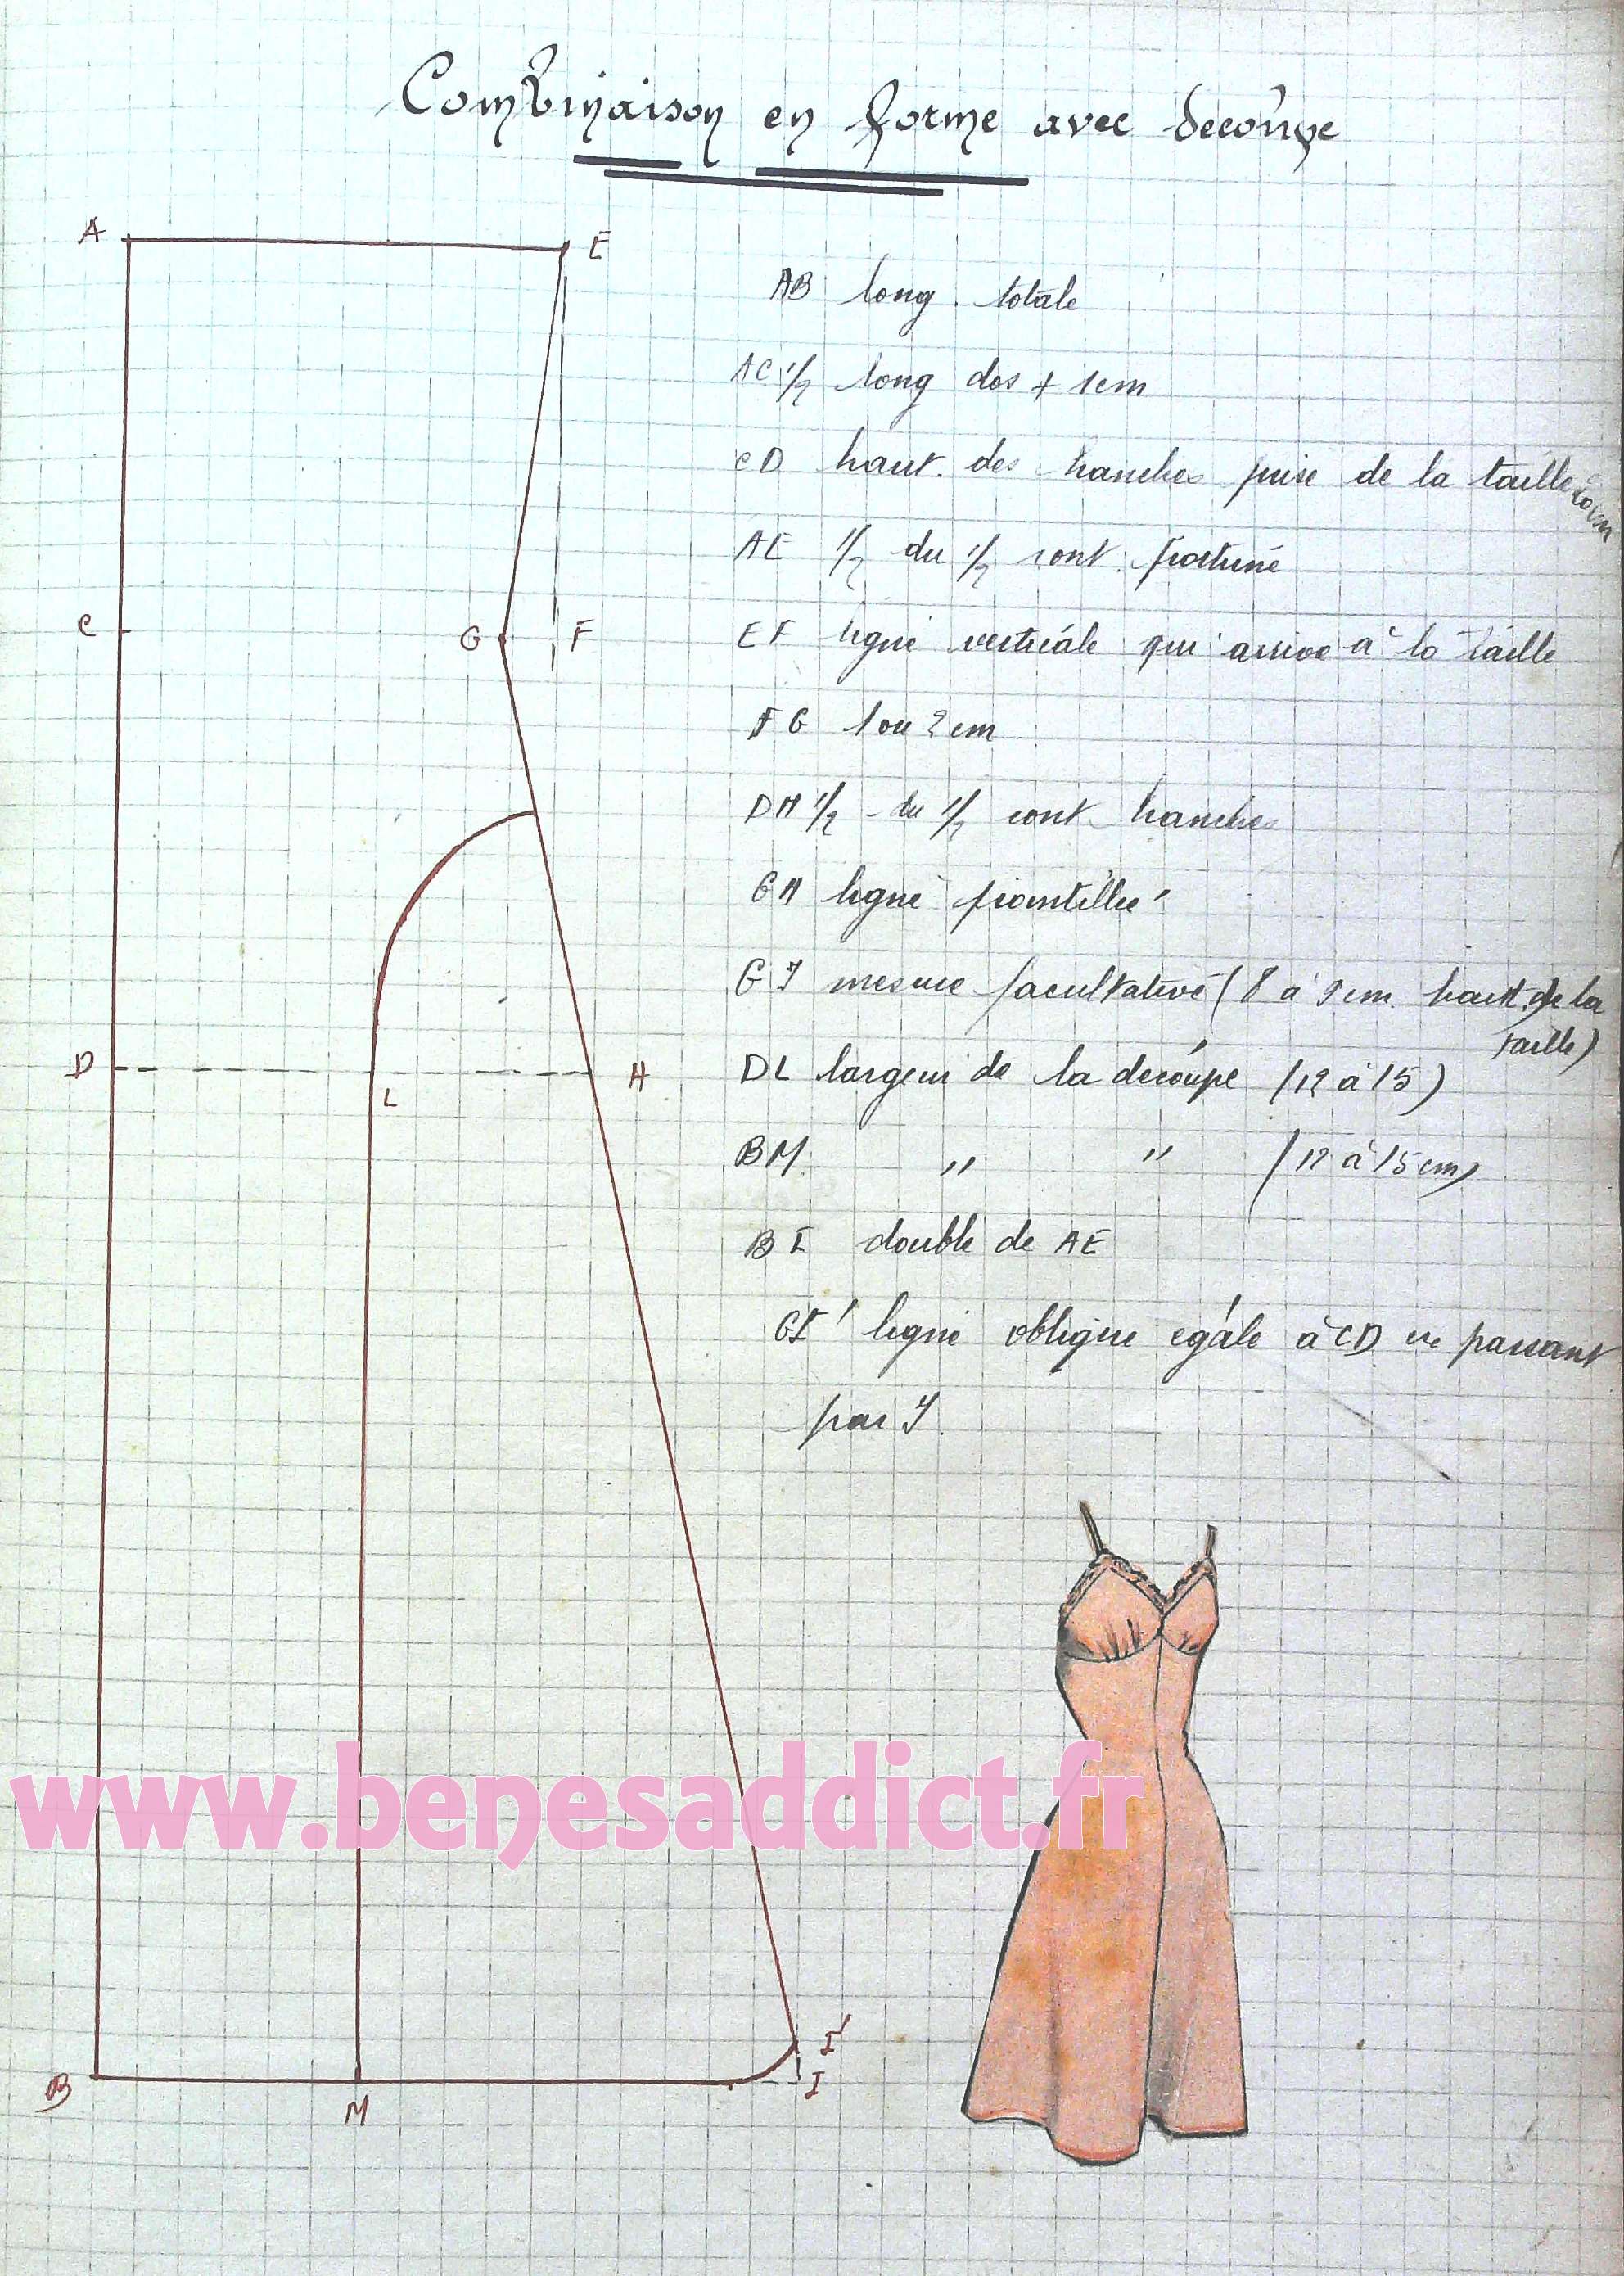 Combinaison en forme avec découpe
A
E
AB long. totale
AC 1/2 long dos + 1cm
CD haut. des hanches prise de la taille 20cm
AE 1/2 du 1/2 cont. poitrine
C
G
F
EF ligne verticale qui arrive à la taille
FG 1 ou 2 cm
DH 1/2 du 1/2 cont hanches
GH ligne pointillée
GJ mesure facultative (8 à 9 cm haut. de la
taille)
D
H
L
DL largeur de la découpe (12 à 15)
BM " " (12 à 15 cm)
BI double de AE
GI' ligne oblique egale à CD en passant
par J
www.benesaddict.fr
I'
I
B
M